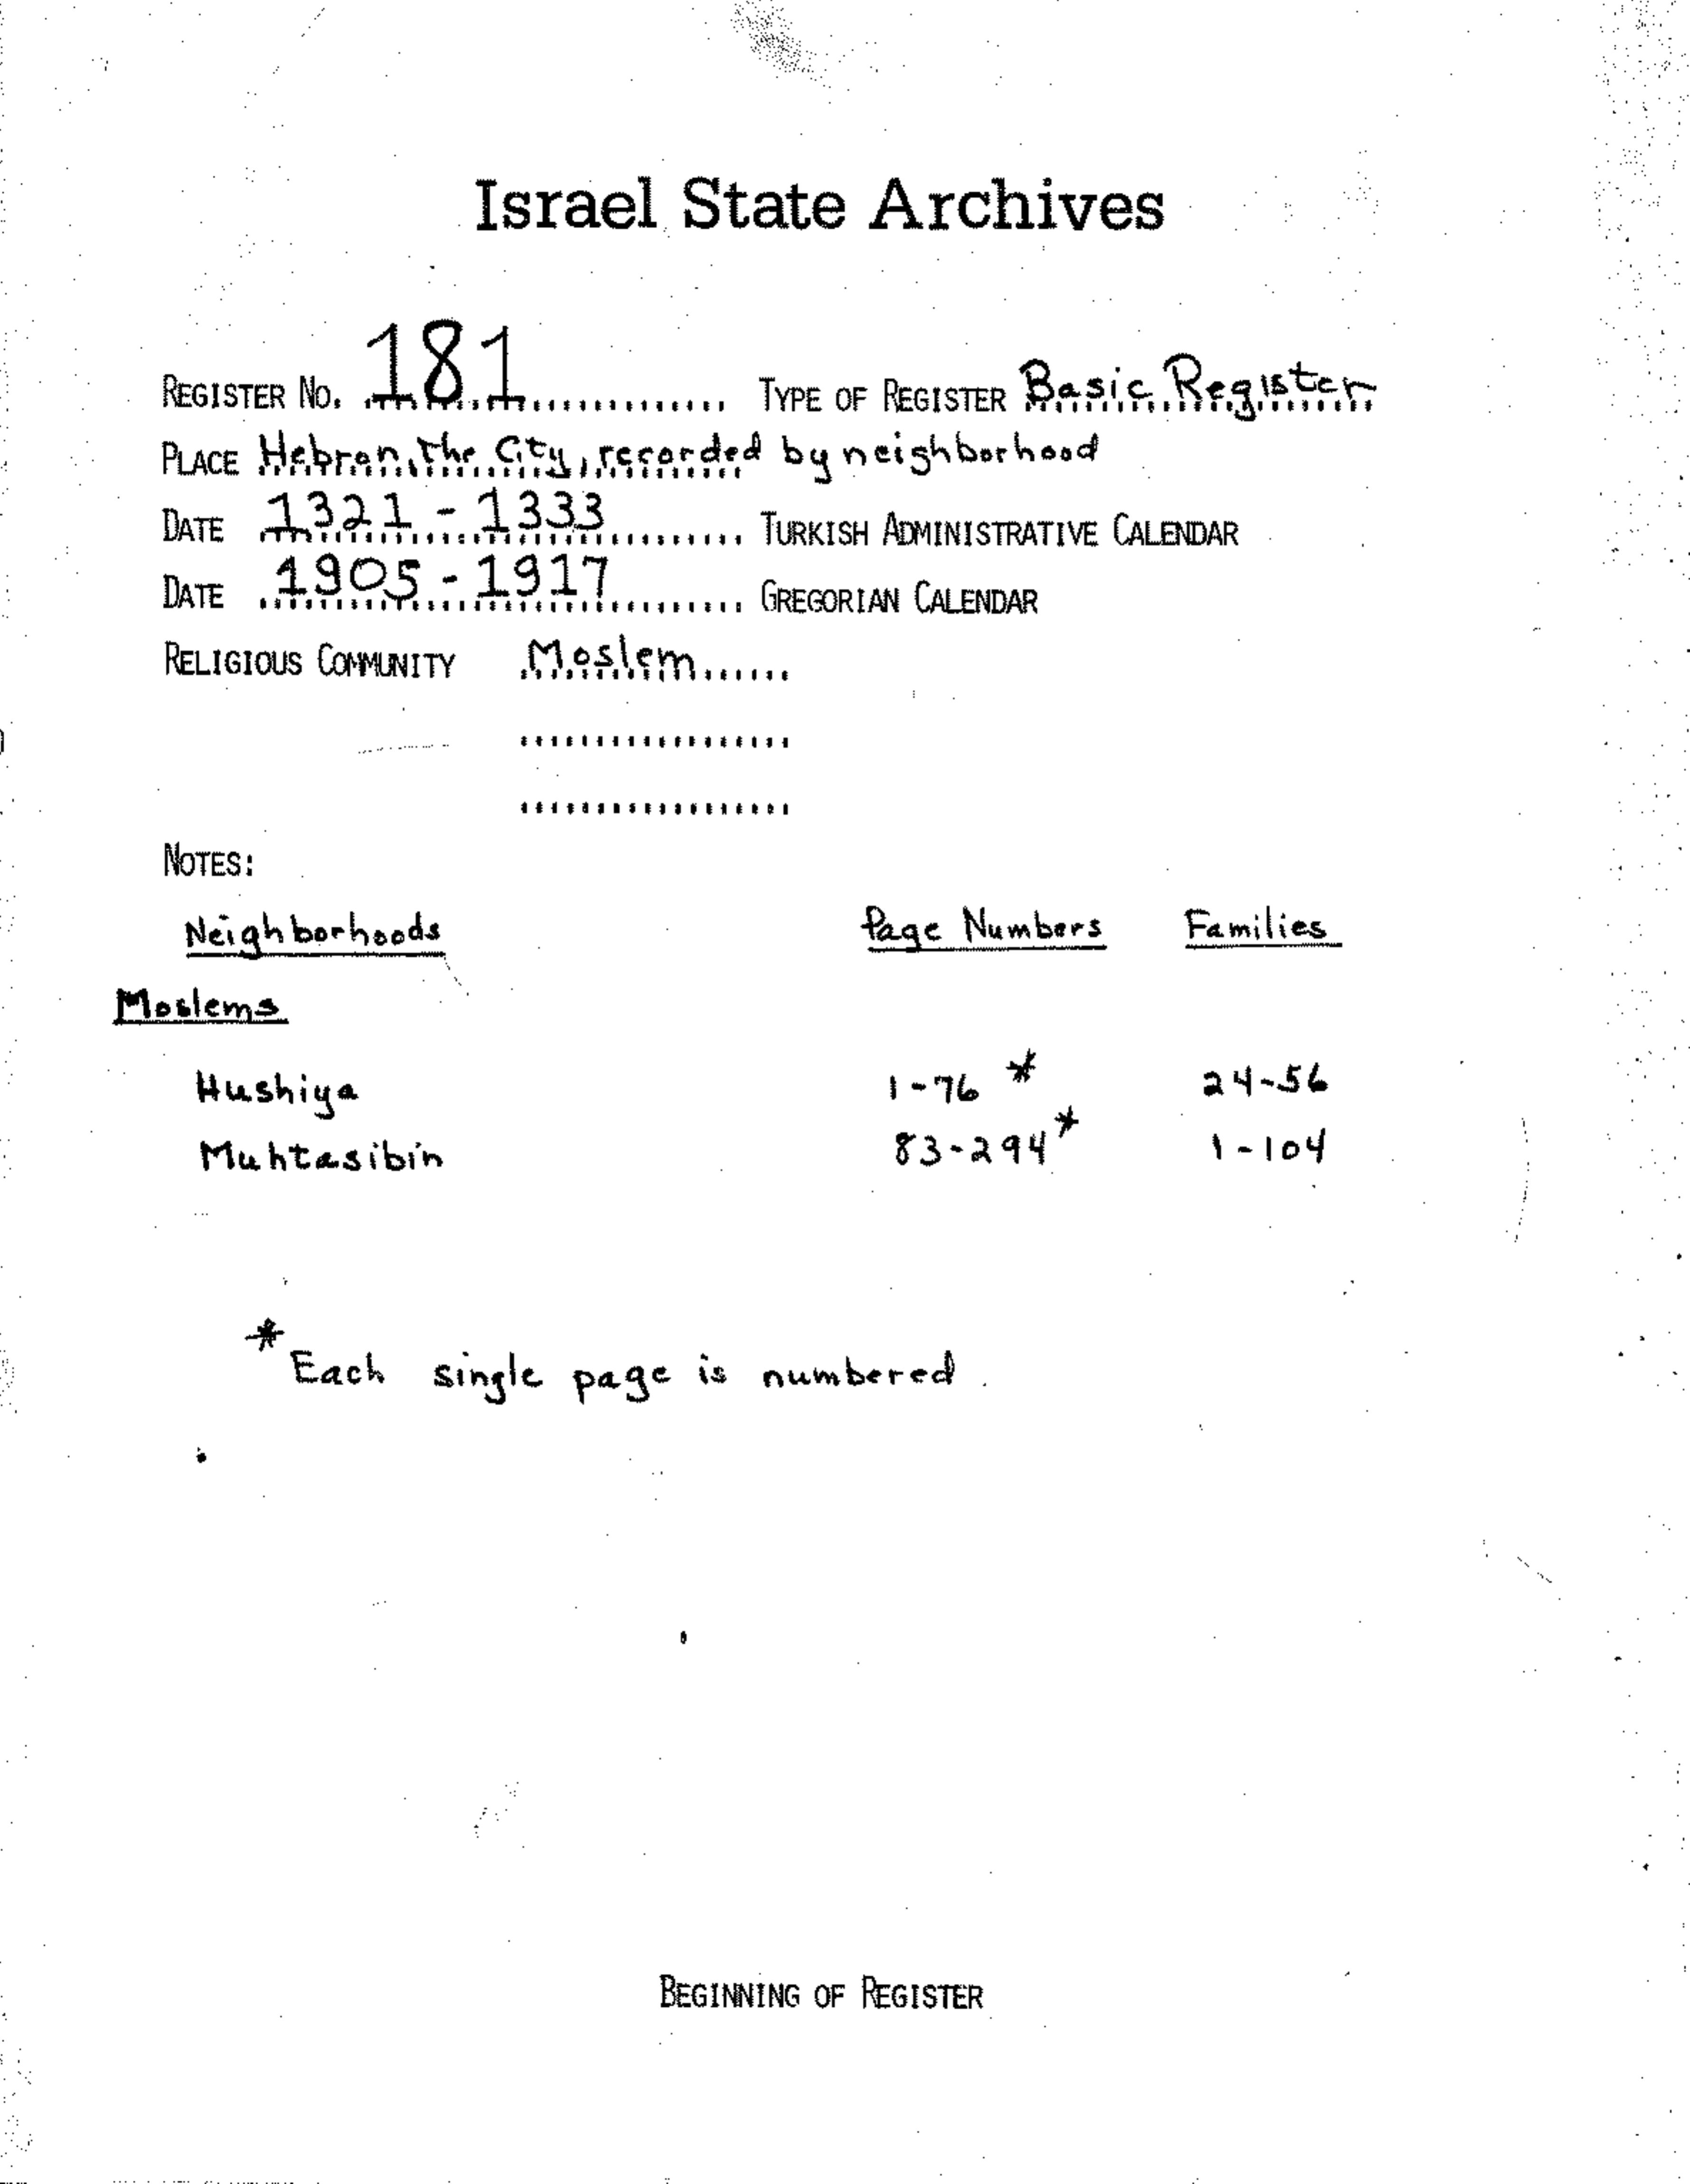 Israel State Archives
REGISTER NO. 181 TYPE OF REGISTER Basic Register
PLACE Hebron, the City, recorded by neighborhood
DATE 1321 - 1333 TURKISH ADMINISTRATIVE CALENDAR
DATE 1905 - 1917 GREGORIAN CALENDAR
RELIGIOUS COMMUNITY Moslem
NOTES:
Neighborhoods Page Numbers Families
Moslems
Hushiya 1-76 * 24-56
Muhtasibin 83-294* 1-104
* Each single page is numbered.
BEGINNING OF REGISTER